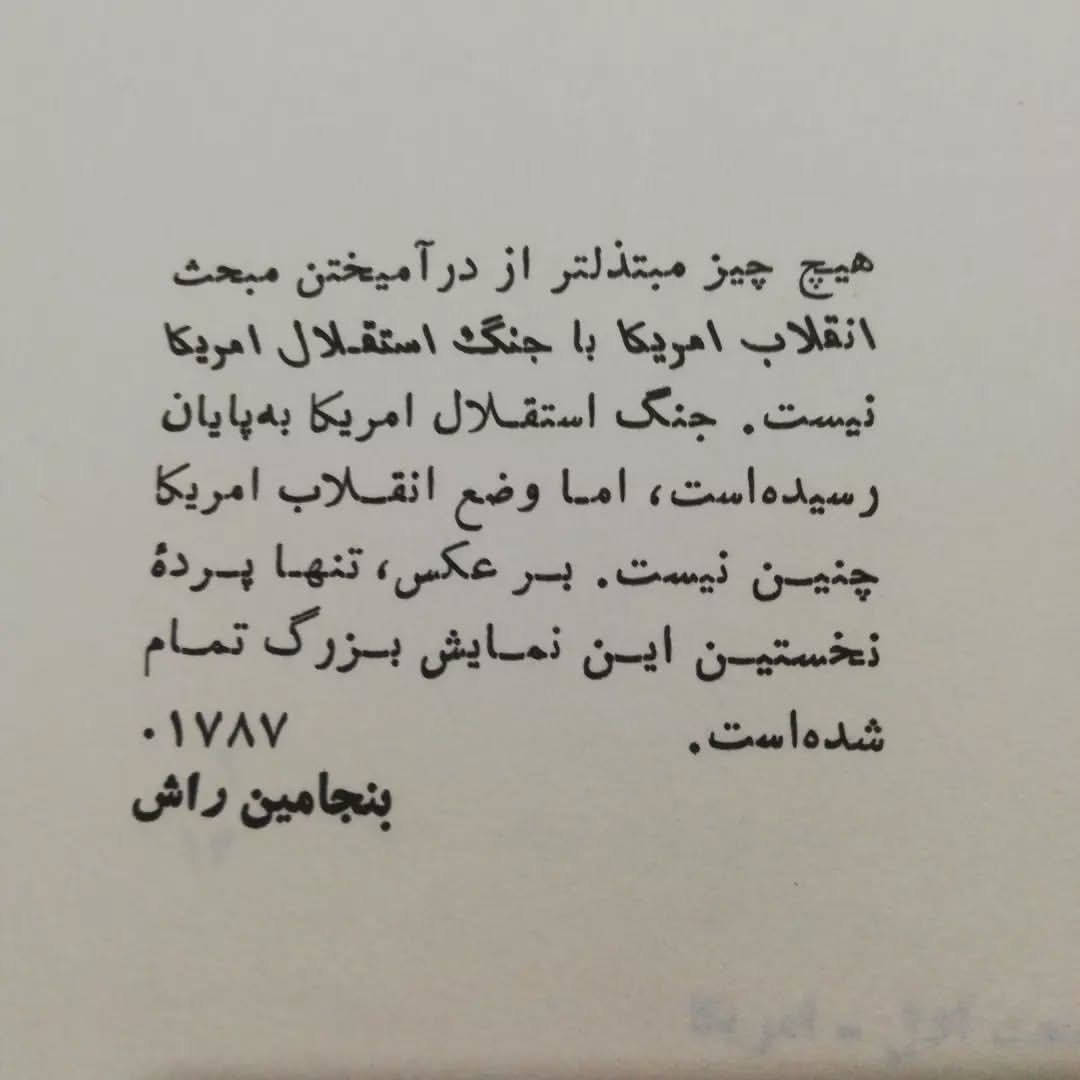 هیچ چیز مبتذلتر از درآمیختن مبحث
انقلاب امریکا با جنگ استقلال امریکا
نیست. جنگ استقلال امریکا به‌پایان
رسیده‌است، اما وضع انقلاب امریکا
چنین نیست. بر عکس، تنها پردهٔ
نخستین این نمایش بزرگ تمام
شده‌است. ۱۷۸۷.
بنجامین راش